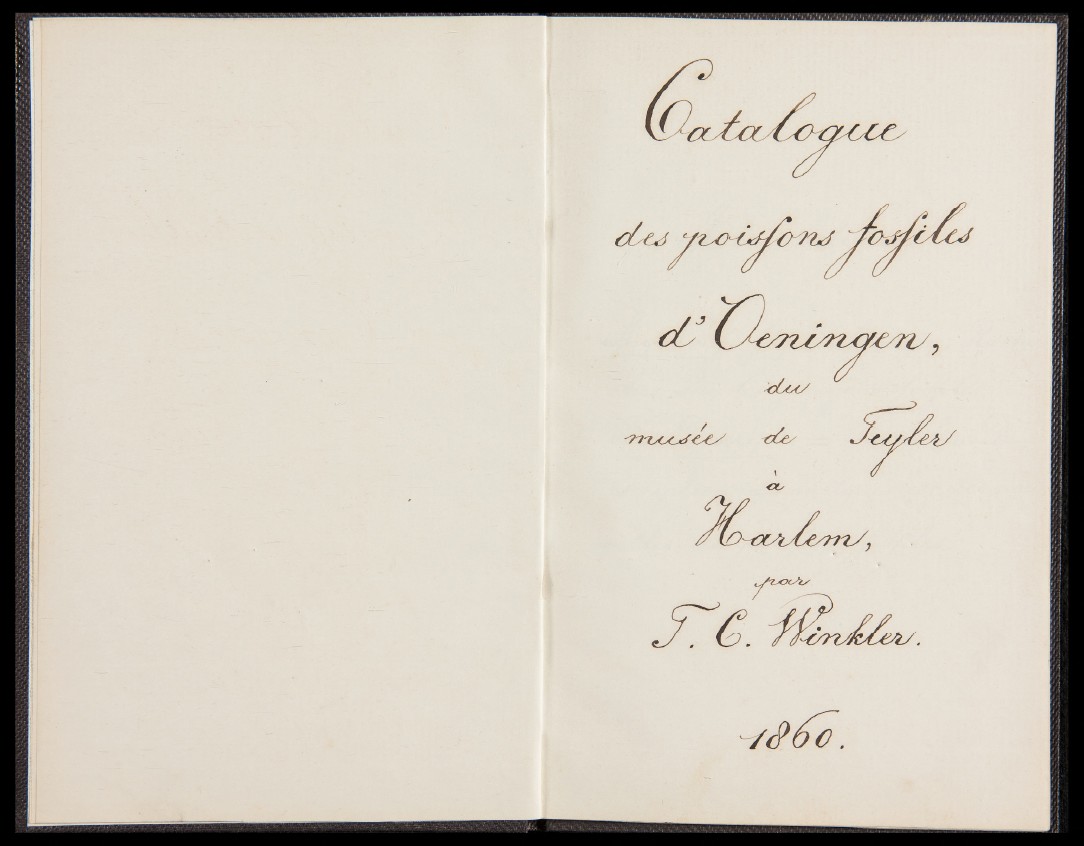 Catalogue
des poisſons fosſiles
d'Oeningen,
du
musée de Teyler
à
Harlem,
par
T. C. Winkler.
1860.